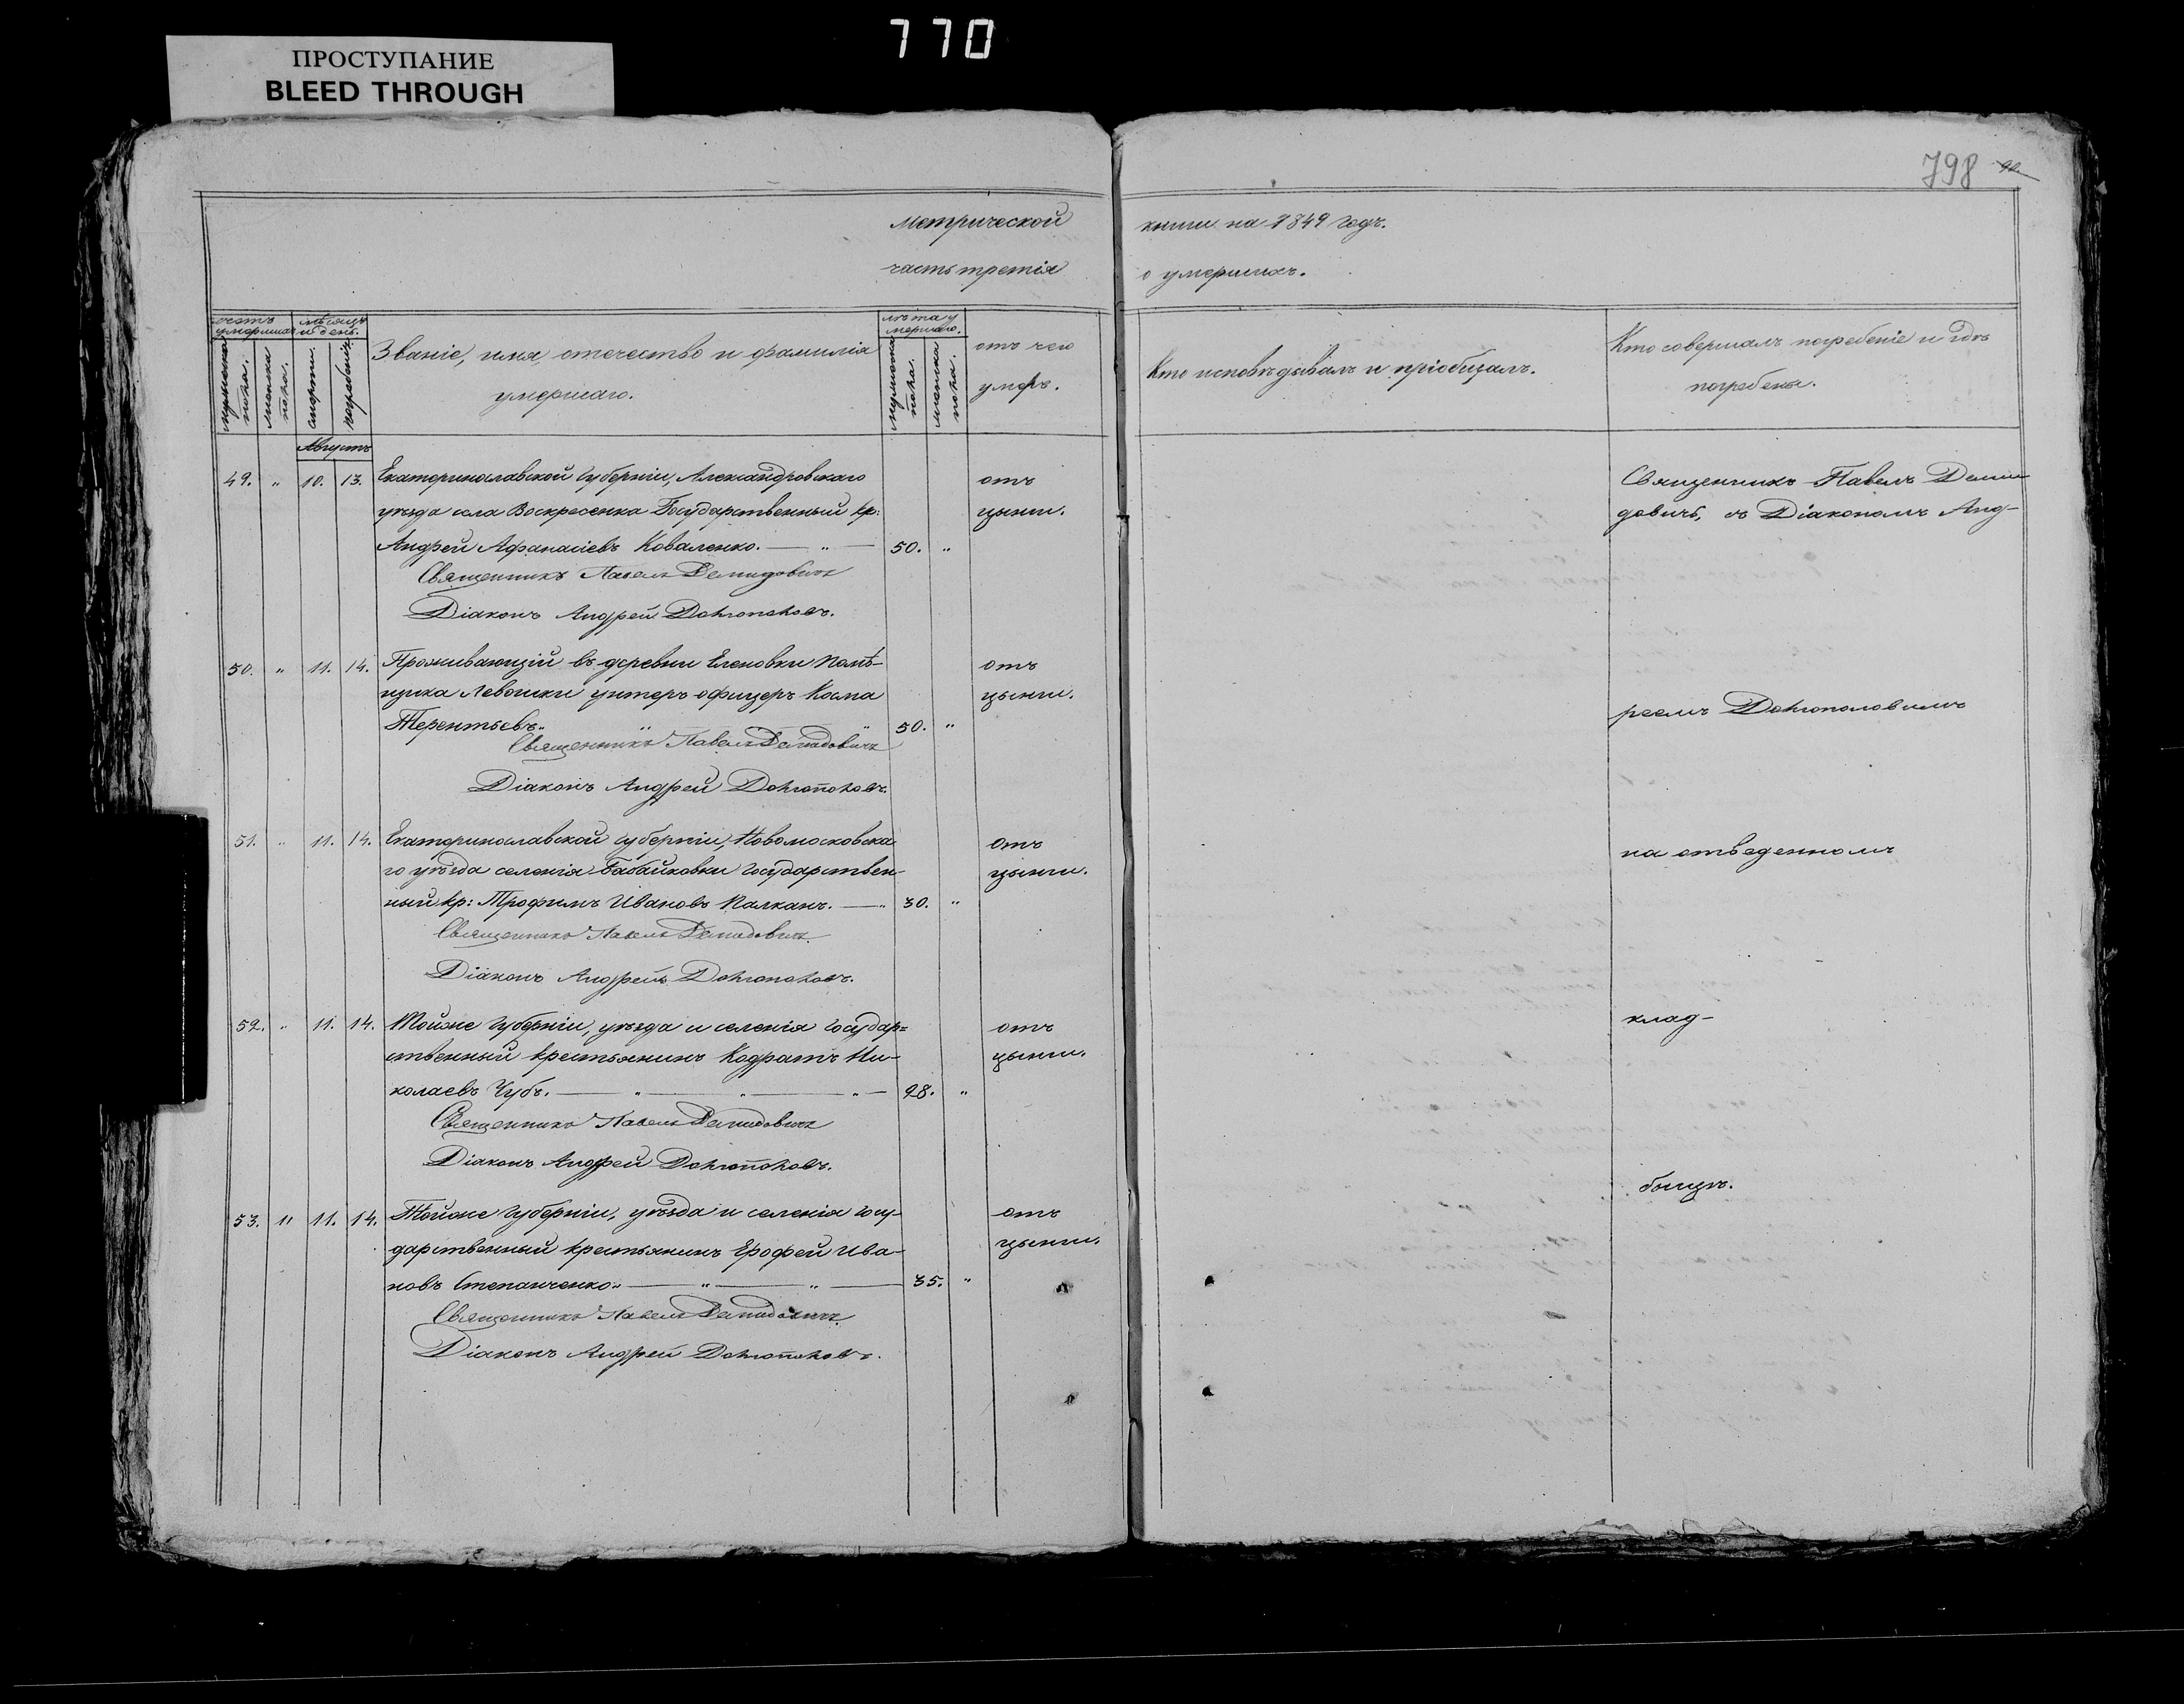 770
ПРОСТУПАНИЕ
BLEED THROUGH
798
Метрической книги на 1849 годъ.
часть третія о умершихъ.
счетъ умершихъ
мѣсяцъ и день.
мужеска пола.
женска пола.
смерти.
погребенія
Званіе, имя, отечество и фамилія
умершаго.
лѣта умершаго.
мужеска пола.
женска пола.
отъ чего
умеръ.
Кто исповѣдывалъ и пріобщалъ.
Кто совершалъ погребеніе и гдѣ
погребены.
Августъ
49. " 10. 13. Екатеринославской губерніи, Александровскаго отъ
уѣзда села Воскресенка Государственный кр: цынги.
Андрей Афанасіевъ Коваленко. — " — 50. "
Священникъ Павелъ Демидовичъ
Діаконъ Андрей
50. " 11. 14. Проживающій въ деревни Еленовки помѣ- отъ
щика Левошки унтеръ-офицеръ Косма цынги.
Терентьевъ. " " 50. "
Священникъ Павелъ Демидовичъ
Діаконъ Андрей
51. " 11. 14. Екатеринославской губерніи, Новомосковска- отъ
го уѣзда селенія Бабайковки государствен- цынги.
ный кр: Трофимъ Ивановъ Палканъ. — " 30. "
Священникъ Павелъ Демидовичъ
Діаконъ Андрей
52. " 11. 14. Тойже губерніи, уѣзда и селенія государ= отъ
ственный крестьянинъ Кодратъ Ни- цынги.
колаевъ Чубъ. — " — " — " — 28. "
Священникъ Павелъ Демидовичъ
Діаконъ Андрей
53. " 11. 14. Тойже губерніи, уѣзда и селенія госу- отъ
дарственный крестьянинъ Ерофей Ива- цынги.
новъ Степанченко. " — " — " — 35. "
Священникъ Павелъ Демидовичъ
Діаконъ Андрей
Священникъ Павелъ Деми
довичъ, съ Діакономъ Анд-
реемъ
на отведенномъ
клад-
бищѣ.